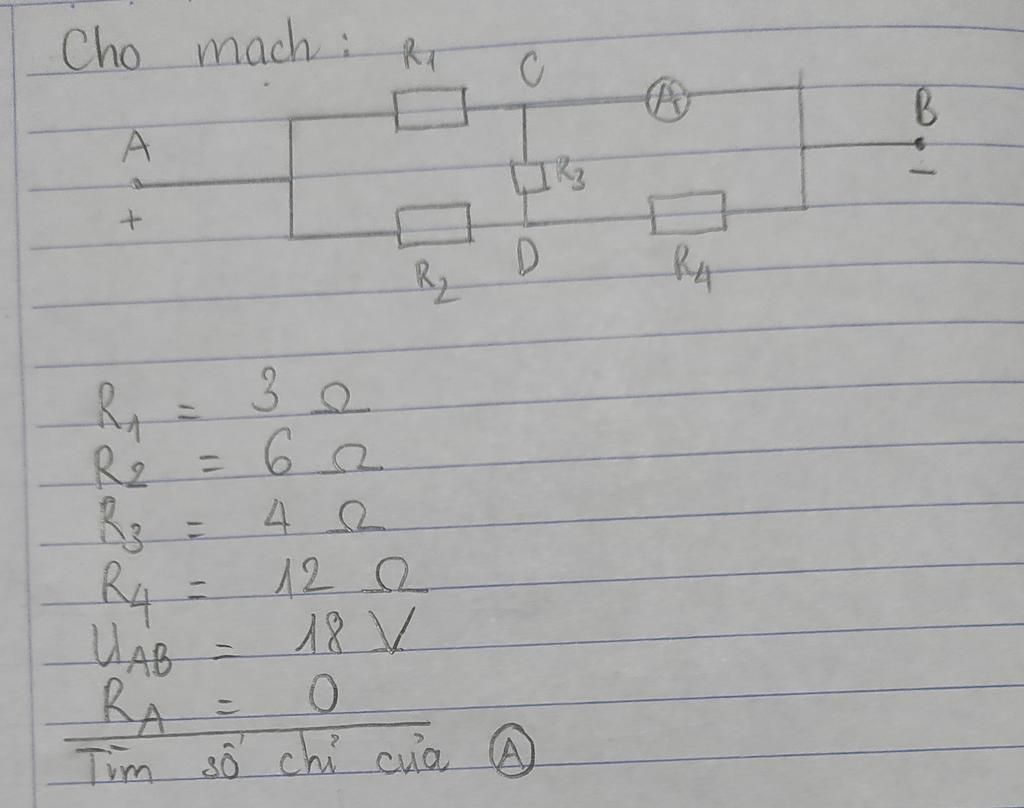 Cho mach:
R1
C
A
B
A
+
R3
-
R2
D
R4
R1 = 3 Ω
R2 = 6 Ω
R3 = 4 Ω
R4 = 12 Ω
UAB = 18 V
RA = 0
Tìm số chỉ của A